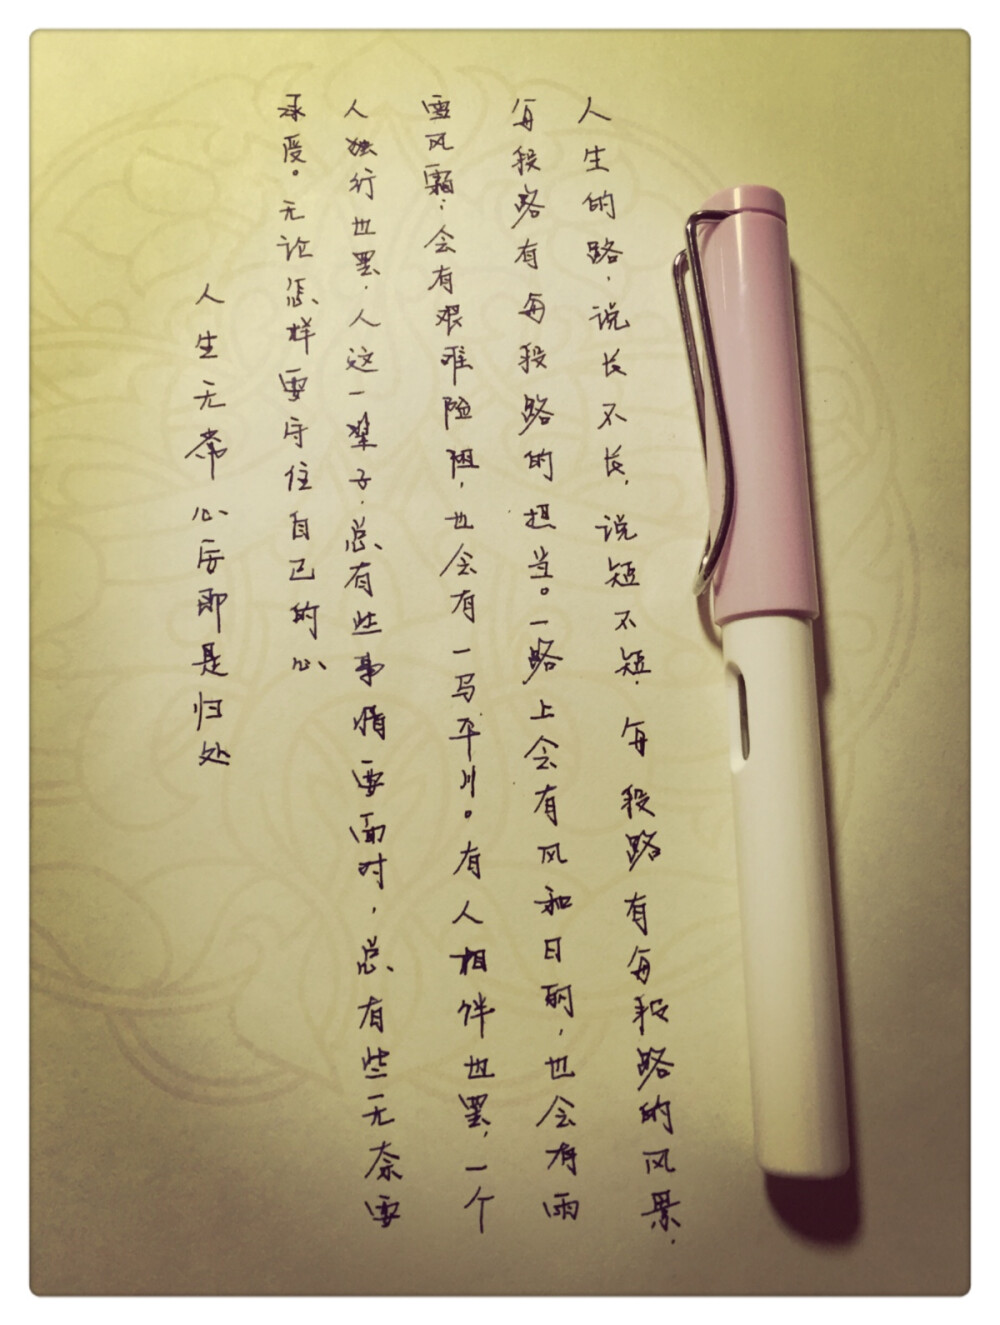 人生的路，说长不长，说短不短，每段路有每段路的风景，
每段路有每段路的担当。一路上会有风和日丽，也会有雨
雪风霜；会有艰难险阻，也会有一马平川。有人相伴也罢，一个
人独行也罢，人这一辈子，总有些事情要面对，总有些无奈要
承受。无论怎样要守住自己的心
人生无常心安即是归处